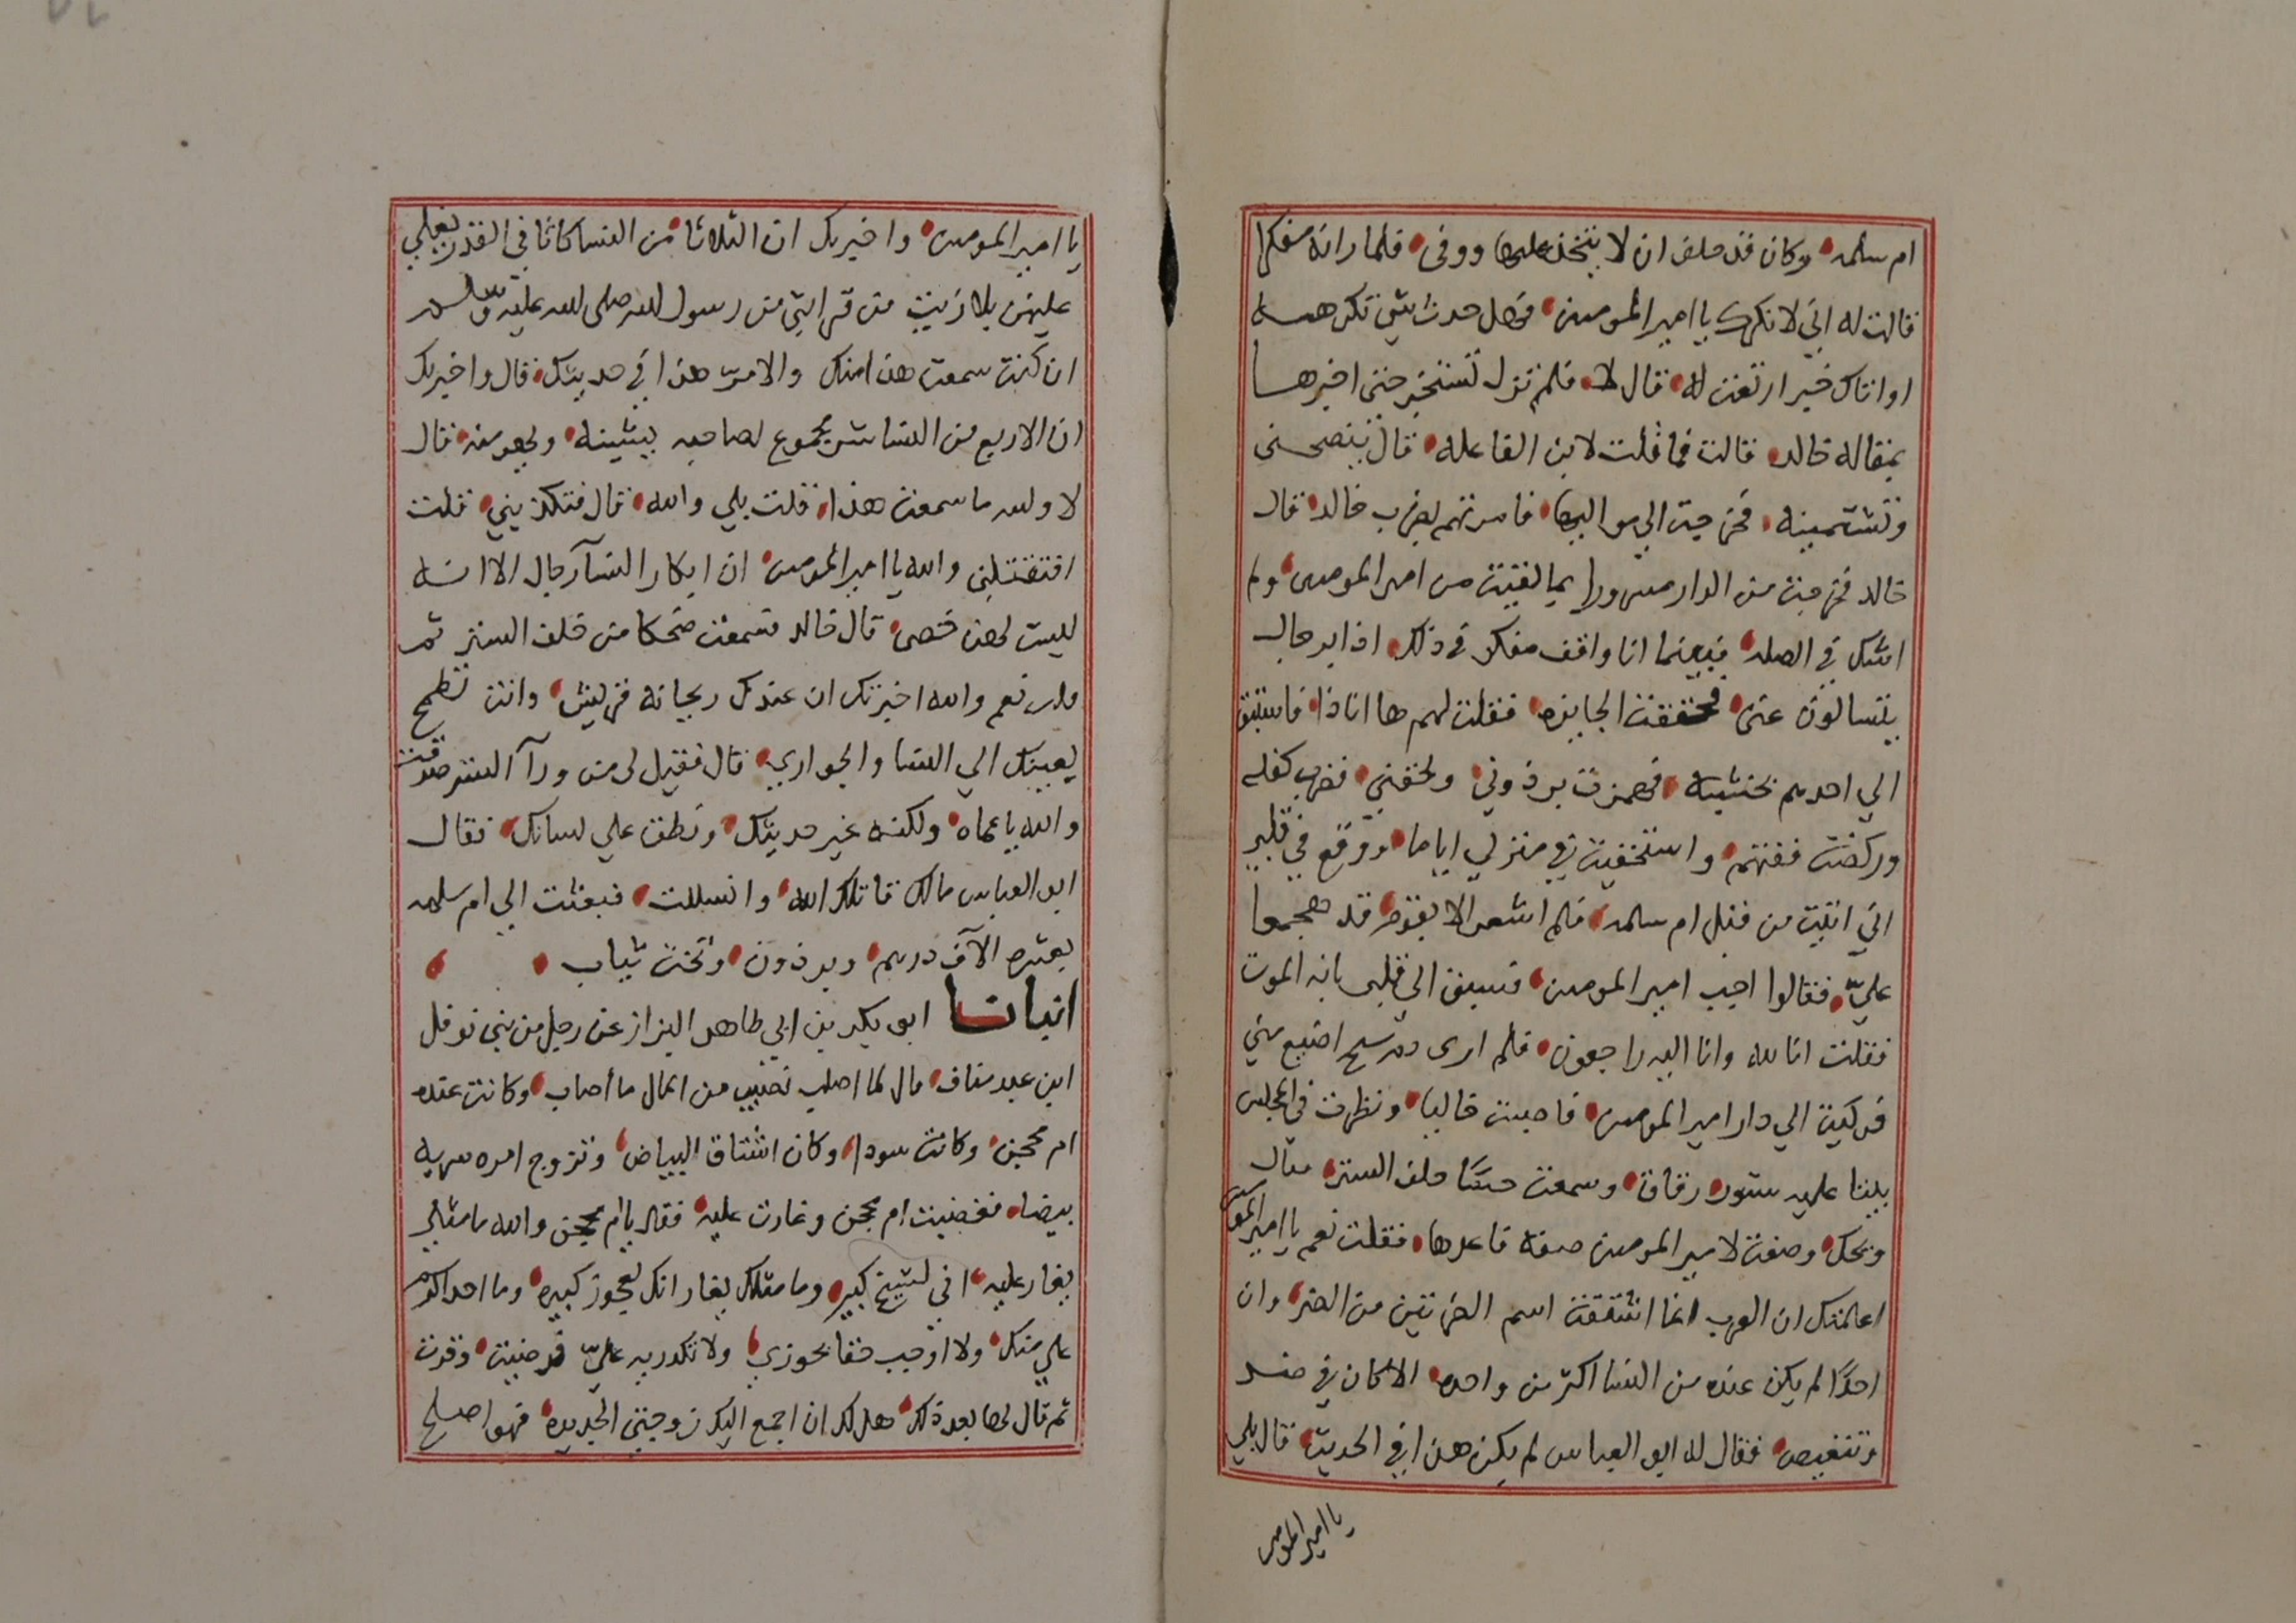 ام سلمه وكان قد حلف ان لا يتخذ عليها ووفى فلما راته مفكرا
قالت له اني لانكرك يا امير المومنين فهل حدث شي تكرهه
او اتاك خبر ارتعت له قال لا فلم تزل تستخبر حتى اخبرها
بمقاله خالد قالت فما قلت لابن الفاعله قال ينصحني
وتشتمينه فخرجت الي مواليها فامرتهم بضرب خالد قال
خالد فخرجت من الدار مسرورا بما لقيت من امير المومنين ولم
اشك في الصله فبينما انا واقف مفكر في ذلك اذا برجال
يتسالون عني فحققت الجايزه فقلت لهم ها انا ذا فاستبق
الي احدهم بخشبه فهمزت برذوني ولحقني فضرب كفله
وركضت ففتهم واستخفيت في منزلي اياما ووقع في قلبي
اني اتيت من قبل ام سلمه فلم اشعر الا بقوم قد هجموا
عليّ فقالوا اجب امير المومنين فسبق الي قلبي بانه الموت
فقلت انا لله وانا اليه راجعون فلم ارى دم شيخ اضيع مني
فركبت الي دار امير المومنين فاصبت خاليا ونظرت في المجلس
بيتا عليه ستور رقاق وسمعت حسّا خلف الستر فقال
ويحك وصفت لامير المومنين صفه فاعدها فقلت نعم يا امير المومنين
اعلمتك ان العرب انما اشتقت اسم الضرتين من الضر وان
احدًا لم يكن عنده من النسا اكثر من واحده الا كان في ضد
وتنغيص فقال له ابو العباس لم يكن هذا في الحديث قال بلي
يا امير المومنين
يا امير المومنين واخبرتك ان الثلاثا من النسا كاثافي القدر يغلي
عليهن بلا زيت من قرابتي من رسول الله صلى الله عليه وسلم
ان كنت سمعت هذا منك والا مرّ هذا في حديثك قال واخبرتك
ان الاربع من النسا شر مجموع لصاحبه يشينه ويهرمنه قال
لا والله ما سمعت هذا قلت بلي والله قال فتكذبيني قلت
افتقتلني والله يا امير المومنين ان ابكار النسآ رجال الا انه
ليست لهن خصي قال خالد فسمعت ضحكا من خلف الستر ثم
قلت نعم والله اخبرتك ان عندك ريحانه قريش وانت تطمح
بعينك الي النسا والجواري قال فقيل لي من ورآ الستر صدقت
والله يا عماه ولكنه غير حديثك ونطق علي لسانك فقال
ابو العباس مالك قاتلك الله وانسللت فبعثت الي ام سلمه
بعشره الآف درهم وبرذون وتخت ثياب
انبانا ابو بكر بن ابي طاهر البزاز عن رجل من بني نوفل
ابن عبد مناف قال لما اصاب نصيب من المال ما اصاب وكانت عنده
ام محجن وكانت سودا وكان اشتاق البياض وتزوج امره سريه
بيضا فغضبت ام محجن وغارت عليه فقال يا ام محجن والله ما مثلي
يغار عليه اني لشيخ كبير وما مثلك يغار انك لعجوز كبيره وما احد اكرم
علي منك ولا اوجب حقا فجوزي ولا تكدريه عليّ فرضيت وقرت
ثم قال لها بعد ذلك هل لك ان اجمع اليك زوجتي الجديده فهو اصلح